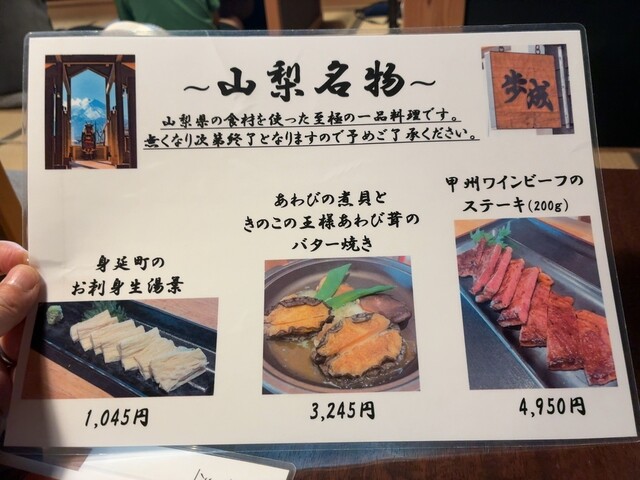 ～山梨名物～
歩成
山梨県の食材を使った至極の一品料理です。
無くなり次第終了となりますので予めご了承ください。
身延町の
お刺身生湯葉
1,045円
あわびの煮貝と
きのこの王様あわび茸の
バター焼き
3,245円
甲州ワインビーフの
ステーキ(200g)
4,950円